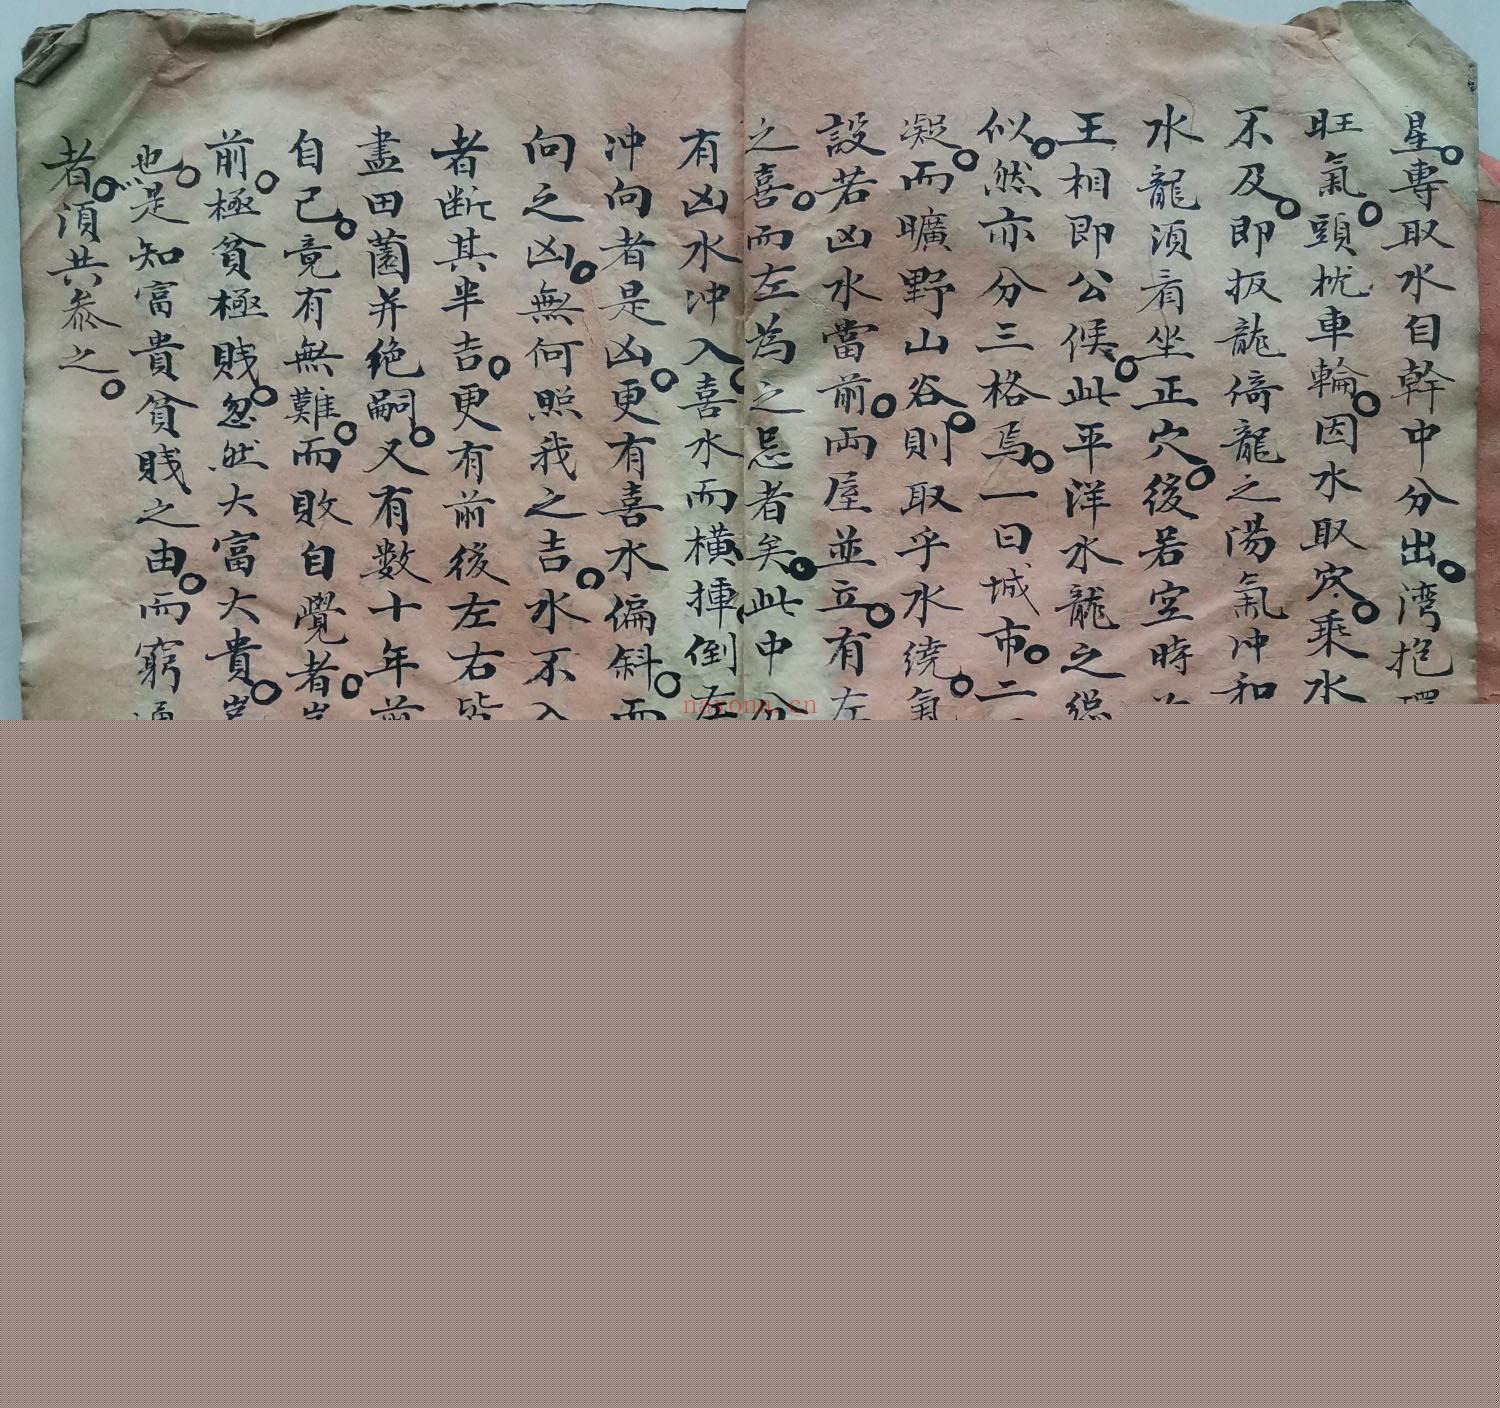 星專取水自幹中分出灣抱環
旺氣頭枕車輪因水取穴乘水
不及即扳龍倚龍之陽氣冲和
水龍須看坐正穴後若空時
王相即公候此平洋水龍之
似然亦分三格焉一曰城市二
凝而曠野山谷則取乎水繞氣
設若凶水當前両屋並立有左
之喜而左為之忌者矣此中分
有凶水冲入喜水而橫揰倒左
冲向者是凶更有喜水偏斜而
向之凶無何照我之吉水不入
者断其半吉更有前後左右皆
盡田薗并絶嗣又有數十年前
自己竟有無難而敗自覺者
前極貧極賎忽然大富大貴
也是知富貴貧賎之由而窮通
者須共叅之
nayona.cn